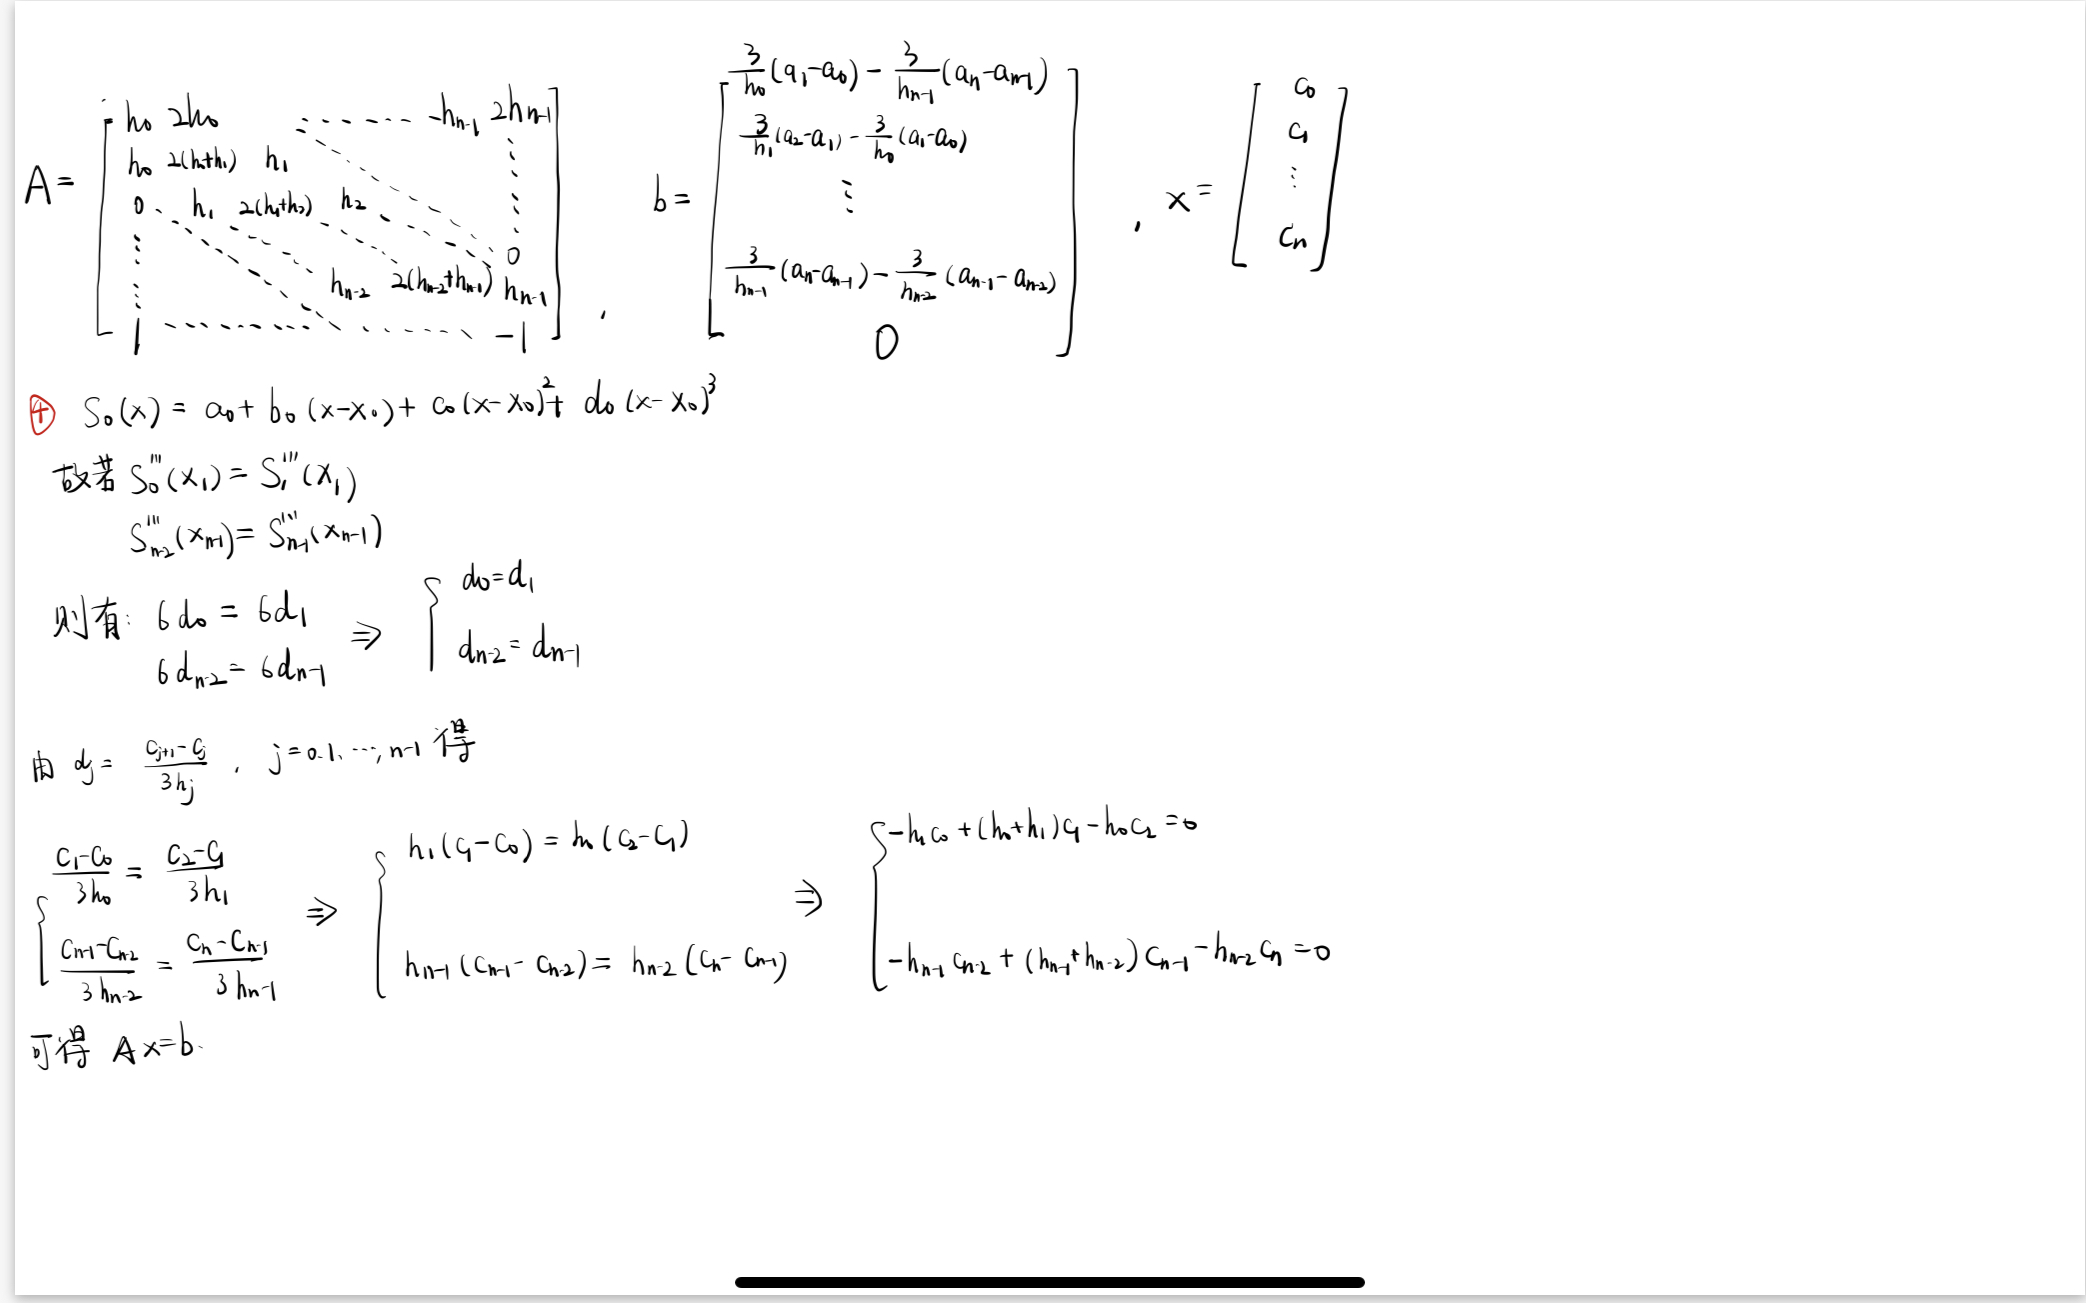 A = [ h₀ 2h₀ ⋯⋯ -hₙ₋₁ 2hₙ₋₁
h₀ 2(h₀+h₁) h₁
0 h₁ 2(h₁+h₂) h₂
0
hₙ₋₂ 2(hₙ₋₂+hₙ₋₁) hₙ₋₁
1 ⋯⋯ -1 ] ,
b = [ 3/h₀ (a₁-a₀) - 3/hₙ₋₁ (aₙ-aₙ₋₁)
3/h₁ (a₂-a₁) - 3/h₀ (a₁-a₀)
⋮
3/hₙ₋₁ (aₙ-aₙ₋₁) - 3/hₙ₋₂ (aₙ₋₁-aₙ₋₂)
0 ] ,
x = [ c₀
c₁
⋮
cₙ ]
④ S₀(x) = a₀ + b₀(x-x₀) + c₀(x-x₀)² + d₀(x-x₀)³
故若 S₀'''(x₁) = S₁'''(x₁)
Sₙ₋₂'''(xₙ₋₁) = Sₙ₋₁'''(xₙ₋₁)
则有: 6d₀ = 6d₁ ⇒ { d₀ = d₁
6dₙ₋₂ = 6dₙ₋₁ dₙ₋₂ = dₙ₋₁
由 dⱼ = (cⱼ₊₁-cⱼ)/(3hⱼ) , j=0.1.⋯, n-1 得
{ (c₁-c₀)/(3h₀) = (c₂-c₁)/(3h₁) ⇒ { h₁(c₁-c₀) = h₀(c₂-c₁) ⇒ { -h₁c₀ + (h₀+h₁)c₁ - h₀c₂ = 0
(cₙ₋₁-cₙ₋₂)/(3hₙ₋₂) = (cₙ-cₙ₋₁)/(3hₙ₋₁) hₙ₋₁(cₙ₋₁-cₙ₋₂) = hₙ₋₂(cₙ-cₙ₋₁) -hₙ₋₁cₙ₋₂ + (hₙ₋₁+hₙ₋₂)cₙ₋₁ - hₙ₋₂cₙ = 0
可得 Ax=b.